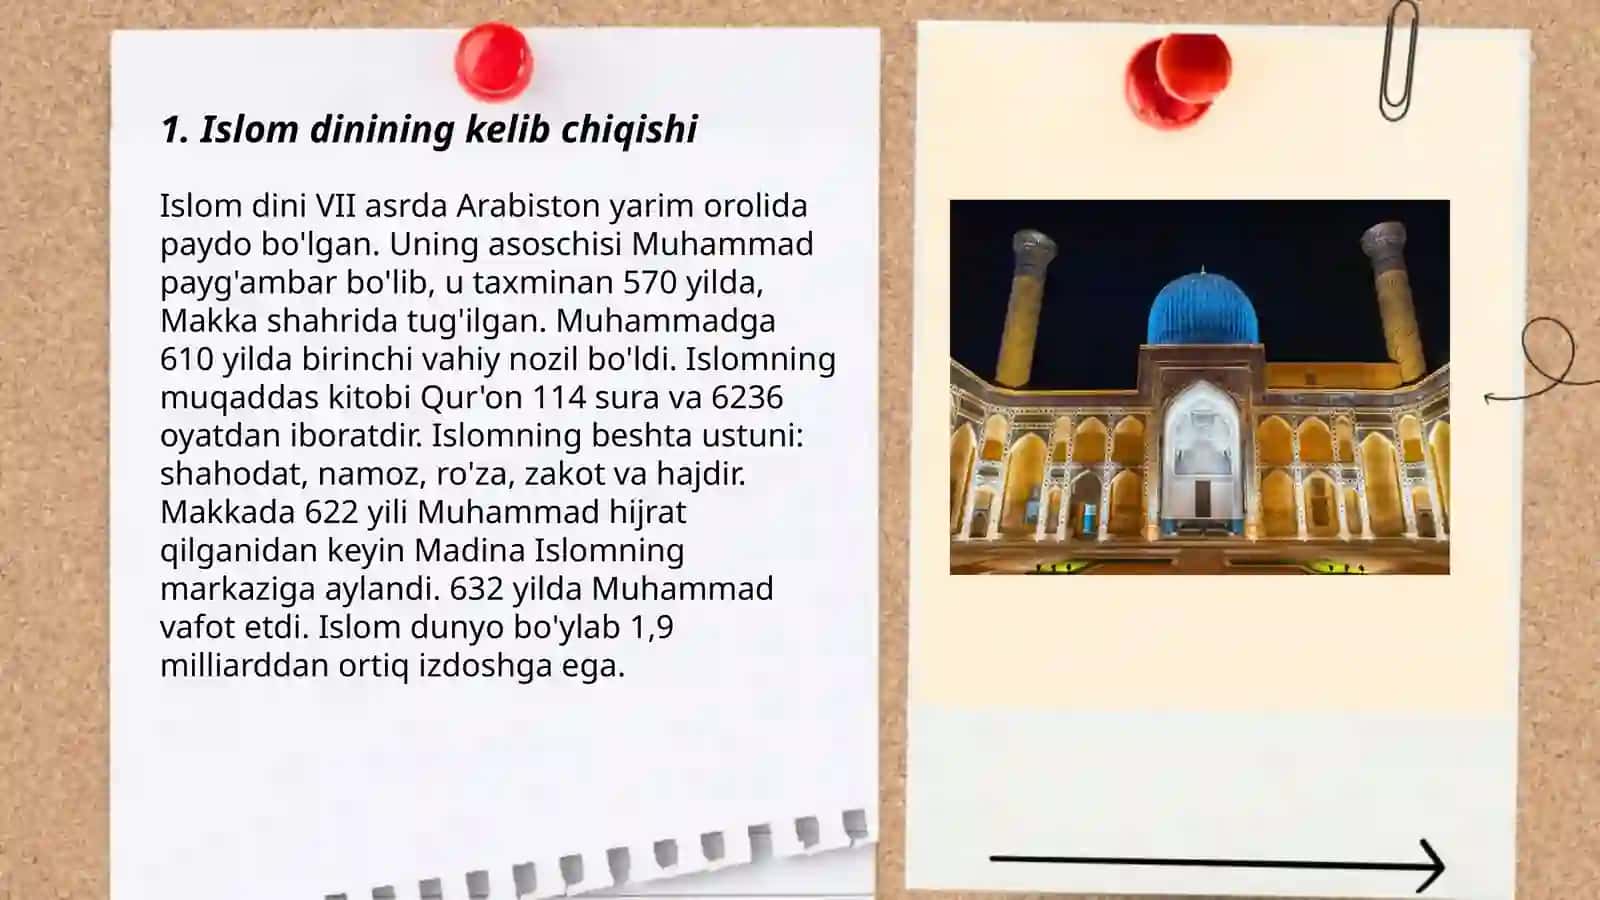 1. Islom dinining kelib chiqishi
Islom dini VII asrda Arabiston yarim orolida
paydo bo'lgan. Uning asoschisi Muhammad
payg'ambar bo'lib, u taxminan 570 yilda,
Makka shahrida tug'ilgan. Muhammadga
610 yilda birinchi vahiy nozil bo'ldi. Islomning
muqaddas kitobi Qur'on 114 sura va 6236
oyatdan iboratdir. Islomning beshta ustuni:
shahodat, namoz, ro'za, zakot va hajdir.
Makkada 622 yili Muhammad hijrat
qilganidan keyin Madina Islomning
markaziga aylandi. 632 yilda Muhammad
vafot etdi. Islom dunyo bo'ylab 1,9
milliarddan ortiq izdoshga ega.